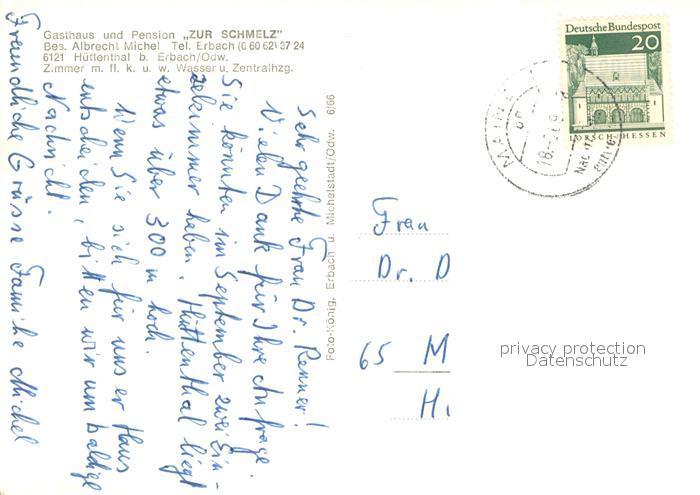 Gasthaus und Pension „ZUR SCHMELZ"
Bes. Albrecht Michel Tel. Erbach (0 60 62) 37 24
6121 Hüttenthal b. Erbach/Odw.
Zimmer m. fl. k. u. w. Wasser u. Zentralhzg.
Sehr geehrte Frau Dr. Renner!
Vielen Dank für Ihre Anfrage.
Sie könnten im September zwei Ein-
zelzimmer haben. Hüttenthal liegt
etwas über 300 m hoch.
Wenn Sie sich für unser Haus
entscheiden, bitten wir um baldige
Nachricht.
Freundliche Grüsse Familie Michel
Foto-König, Erbach u. Michelstadt/Odw. 6/66
Deutsche Bundespost
20
LORSCH/HESSEN
MAINZ
Frau
Dr. D
65 M
Hi
privacy protection
Datenschutz